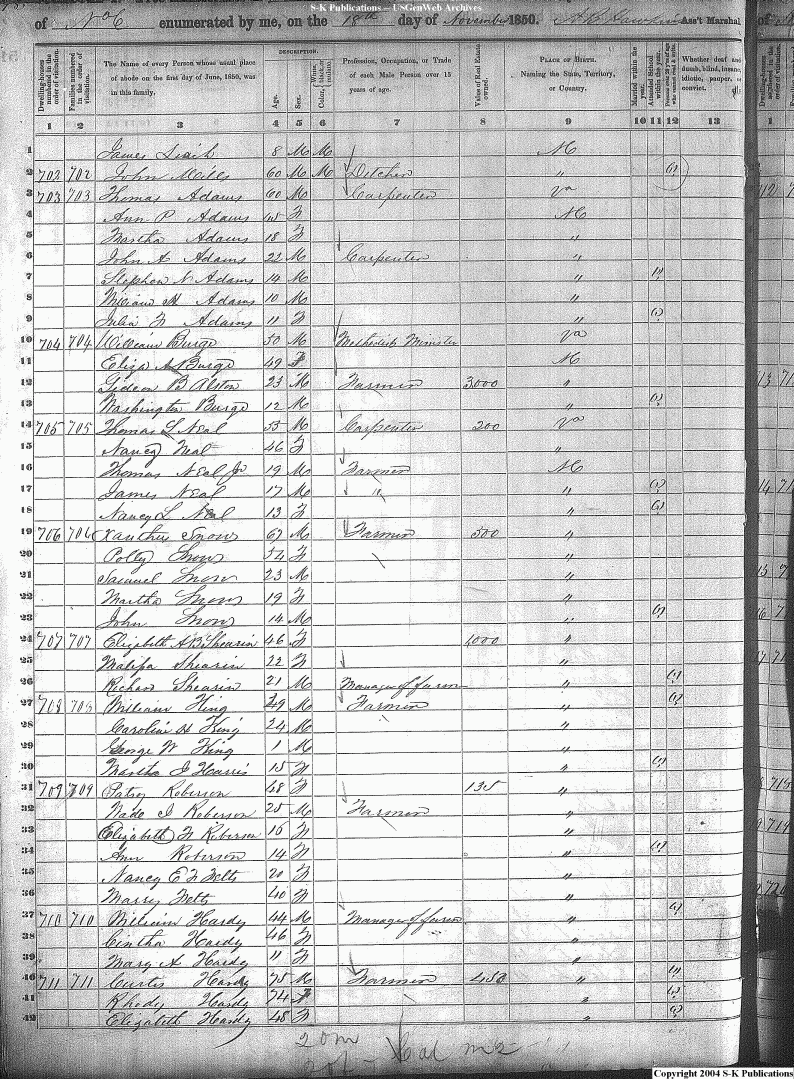 S-K Publications – USGenWeb Archives
of No 6 enumerated by me, on the 18th day of November 1850. Ass't Marshal of
DESCRIPTION.
Dwelling-houses numbered in the order of visitation.
Families numbered in the order of visitation.
The Name of every Person whose usual place of abode on the first day of June, 1850, was in this family.
Age.
Sex.
Profession, Occupation, or Trade of each Male Person over 15 years of age.
Value of Real Estate owned.
PLACE OF BIRTH. Naming the State, Territory, or Country.
Married within the year.
Attended School within the year.
Whether deaf and dumb, blind, insane, idiotic, pauper, or convict.
1 2 3 4 5 6 7 8 9 10 11 12 13 1
1 James 8 M M
2 702 702 John Mills 60 M M Ditcher " (1)
3 703 703 Thomas Adams 60 M Carpenter va
4 Ann P Adams F
5 Martha Adams 18 F "
6 John A Adams 22 M Carpenter "
7 Stephen N Adams 14 M "
8 William H Adams 10 M "
9 Julia F Adams 11 F "
10 704 704 William Burge 50 M Methodist Minister va
11 Eliza A Burge 49 F
12 Gideon B Alston 23 M Farmer 3000 "
13 Washington Burge 12 M "
14 705 705 Thomas L Neal 55 M Carpenter 200 va
15 Nancy Neal 46 F "
16 Thomas Neal Jr 19 M Farmer
17 James Neal 17 M " "
18 Nancy L Neal 13 F "
19 706 706 Xanthus Snow 67 M Farmer 500 "
20 Polly Snow 54 F "
21 Samuel Snow 23 M "
22 Martha Snow 19 F "
23 John Snow 14 M "
24 707 707 Elizabeth A B Shearin 46 F 1000 "
25 Shearin 22 F "
26 Richard Shearin 21 M Manager of farm "
27 708 708 William King 49 M Farmer "
28 Caroline H King 24 M "
29 George W King 1 M "
30 Martha J Harris 15 F "
31 709 709 Patsy Roberson 48 F 135 "
32 Wade J Roberson 25 M Farmer "
33 Elizabeth F Roberson 16 F "
34 Ann Roberson 14 F "
35 Nancy E F Felts 20 F "
36 Felts 40 F "
37 710 710 William Hardy 44 M Manager of farm "
38 Cintha Hardy 46 F "
39 Mary A Hardy 11 F "
40 711 711 Curtis Hardy 75 M Farmer 450 "
41 Rhody Hardy 74 F "
42 Elizabeth Hardy 48 F "
20 m
Copyright 2004 S-K Publications